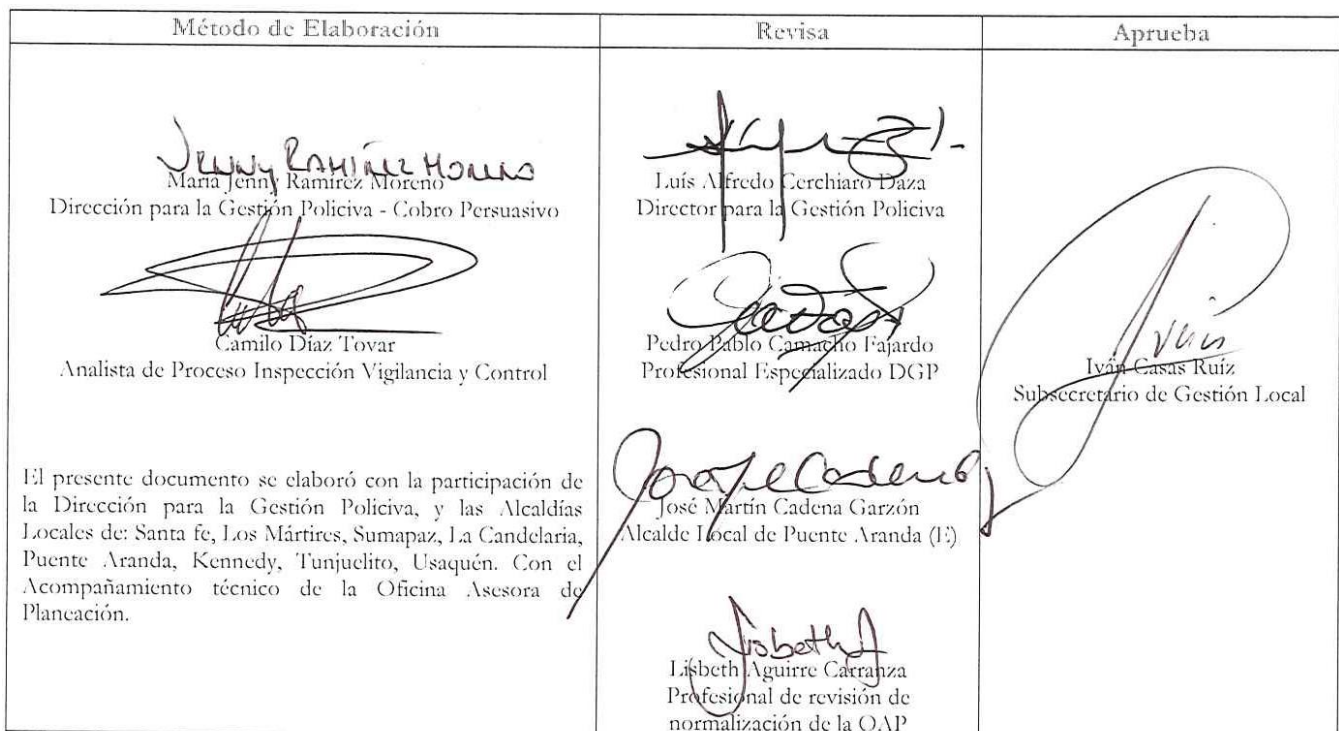 Método de Elaboración
Revisa
Aprueba
JENNY RAMÍREZ MORENO
María Jenny Ramírez Moreno
Dirección para la Gestión Policiva - Cobro Persuasivo
Camilo Díaz Tovar
Analista de Proceso Inspección Vigilancia y Control
El presente documento se elaboró con la participación de
la Dirección para la Gestión Policiva, y las Alcaldías
Locales de: Santa fe, Los Mártires, Sumapaz, La Candelaria,
Puente Aranda, Kennedy, Tunjuelito, Usaquén. Con el
Acompañamiento técnico de la Oficina Asesora de
Planeación.
Luís Alfredo Cerchiaro Daza
Director para la Gestión Policiva
Pedro Pablo Camacho Fajardo
Profesional Especializado DGP
José Martín Cadena Garzón
Alcalde Local de Puente Aranda (E)
Lisbeth A
Lisbeth Aguirre Carranza
Profesional de revisión de
normalización de la OAP
Iván Casas Ruíz
Subsecretario de Gestión Local